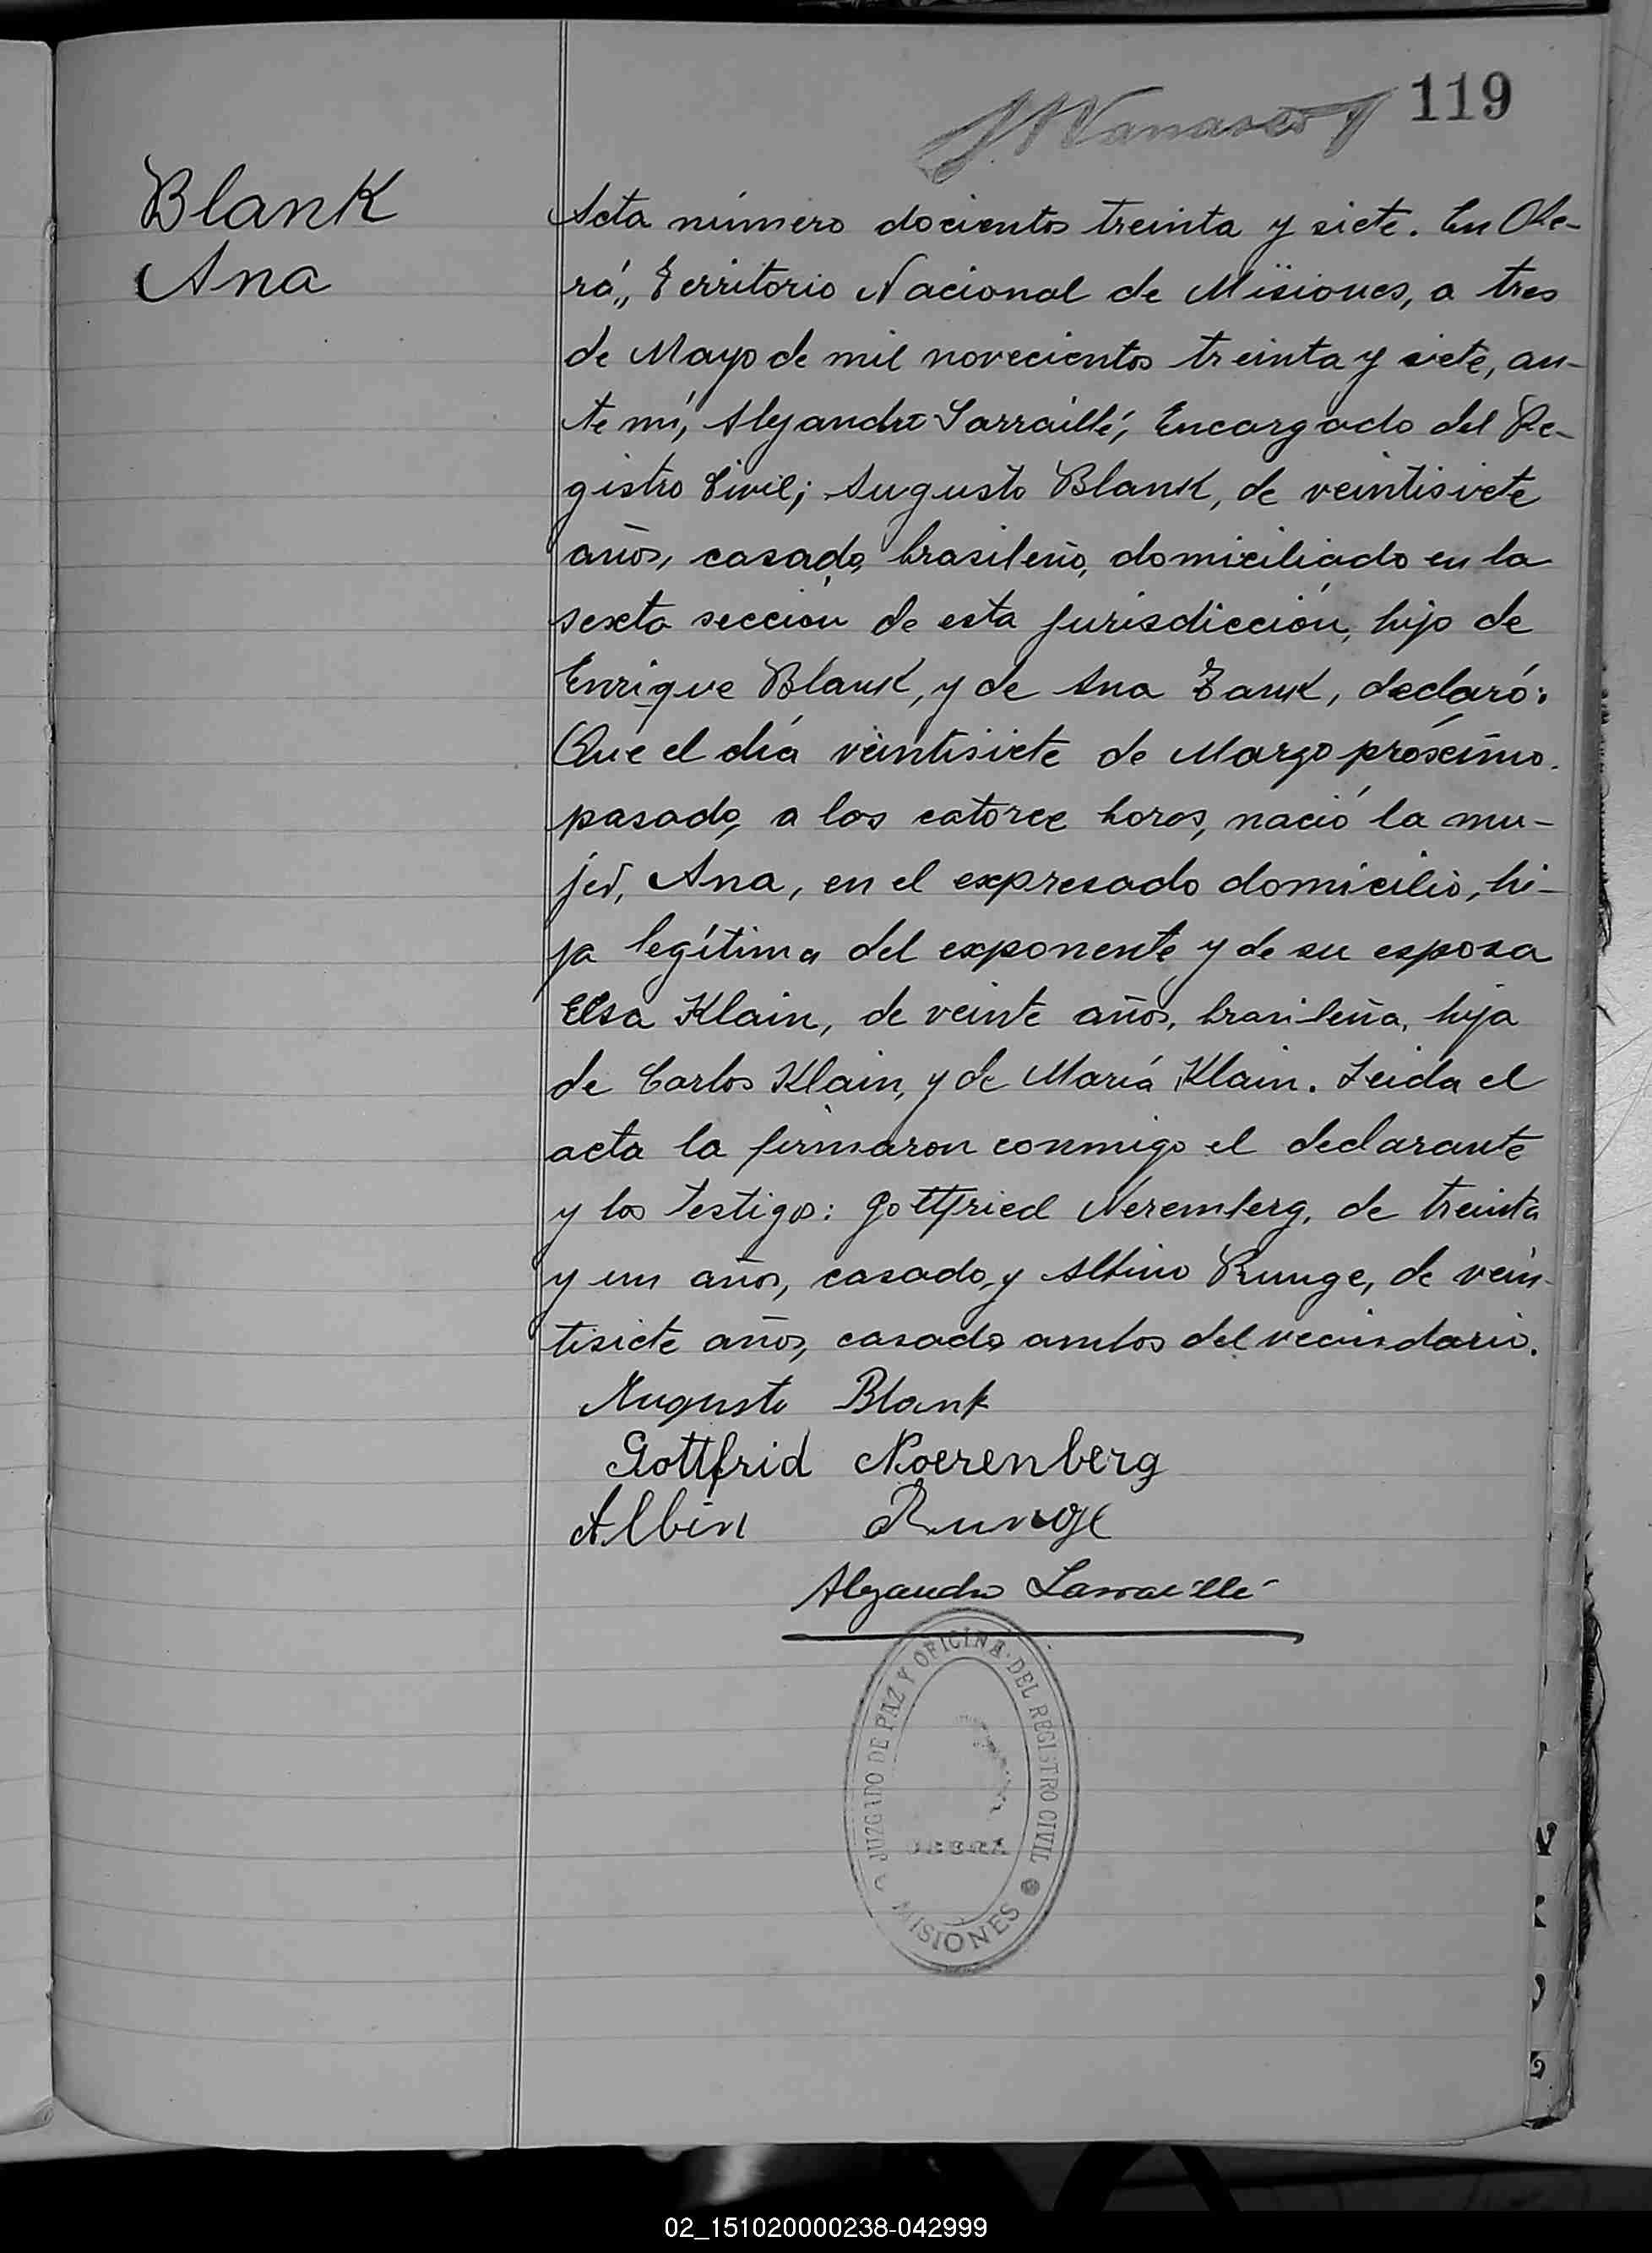 119
Blank
Ana
Acta número docientos treinta y siete. En Obe-
rá,, Territorio Nacional de Misiones, a tres
de Mayo de mil novecientos treinta y siete, an-
te mí, Alejandro Larraillé, Encargado del Re-
gistro Civil; Augusto Blank, de veintisiete
años, casado, brasileño, domiciliado en la
sexta sección de esta jurisdicción, hijo de
Enrique Blank, y de Ana Zank, declaró:
Que el día veintisiete de Marzo próximo
pasado, a las catorce horas, nació la mu-
jer, Ana, en el expresado domicilio, hi-
ja legítima del exponente y de su esposa
Elsa Klain, de veinte años, brasileña, hija
de Carlos Klain, y de María Klain. Leida el
acta la firmaron conmigo el declarante
y los testigos: Gottfried Neremberg, de treinta
y un años, casado, y Albino Runge, de vein-
tisiete años, casado ambos del vecindario.
Augusto Blank
Gottfrid Noerenberg
Albin Runge
Alejandro Larraillé
JUZGADO DE PAZ Y OFICINA DEL REGISTRO CIVIL
OBERA
MISIONES
02_151020000238-042999